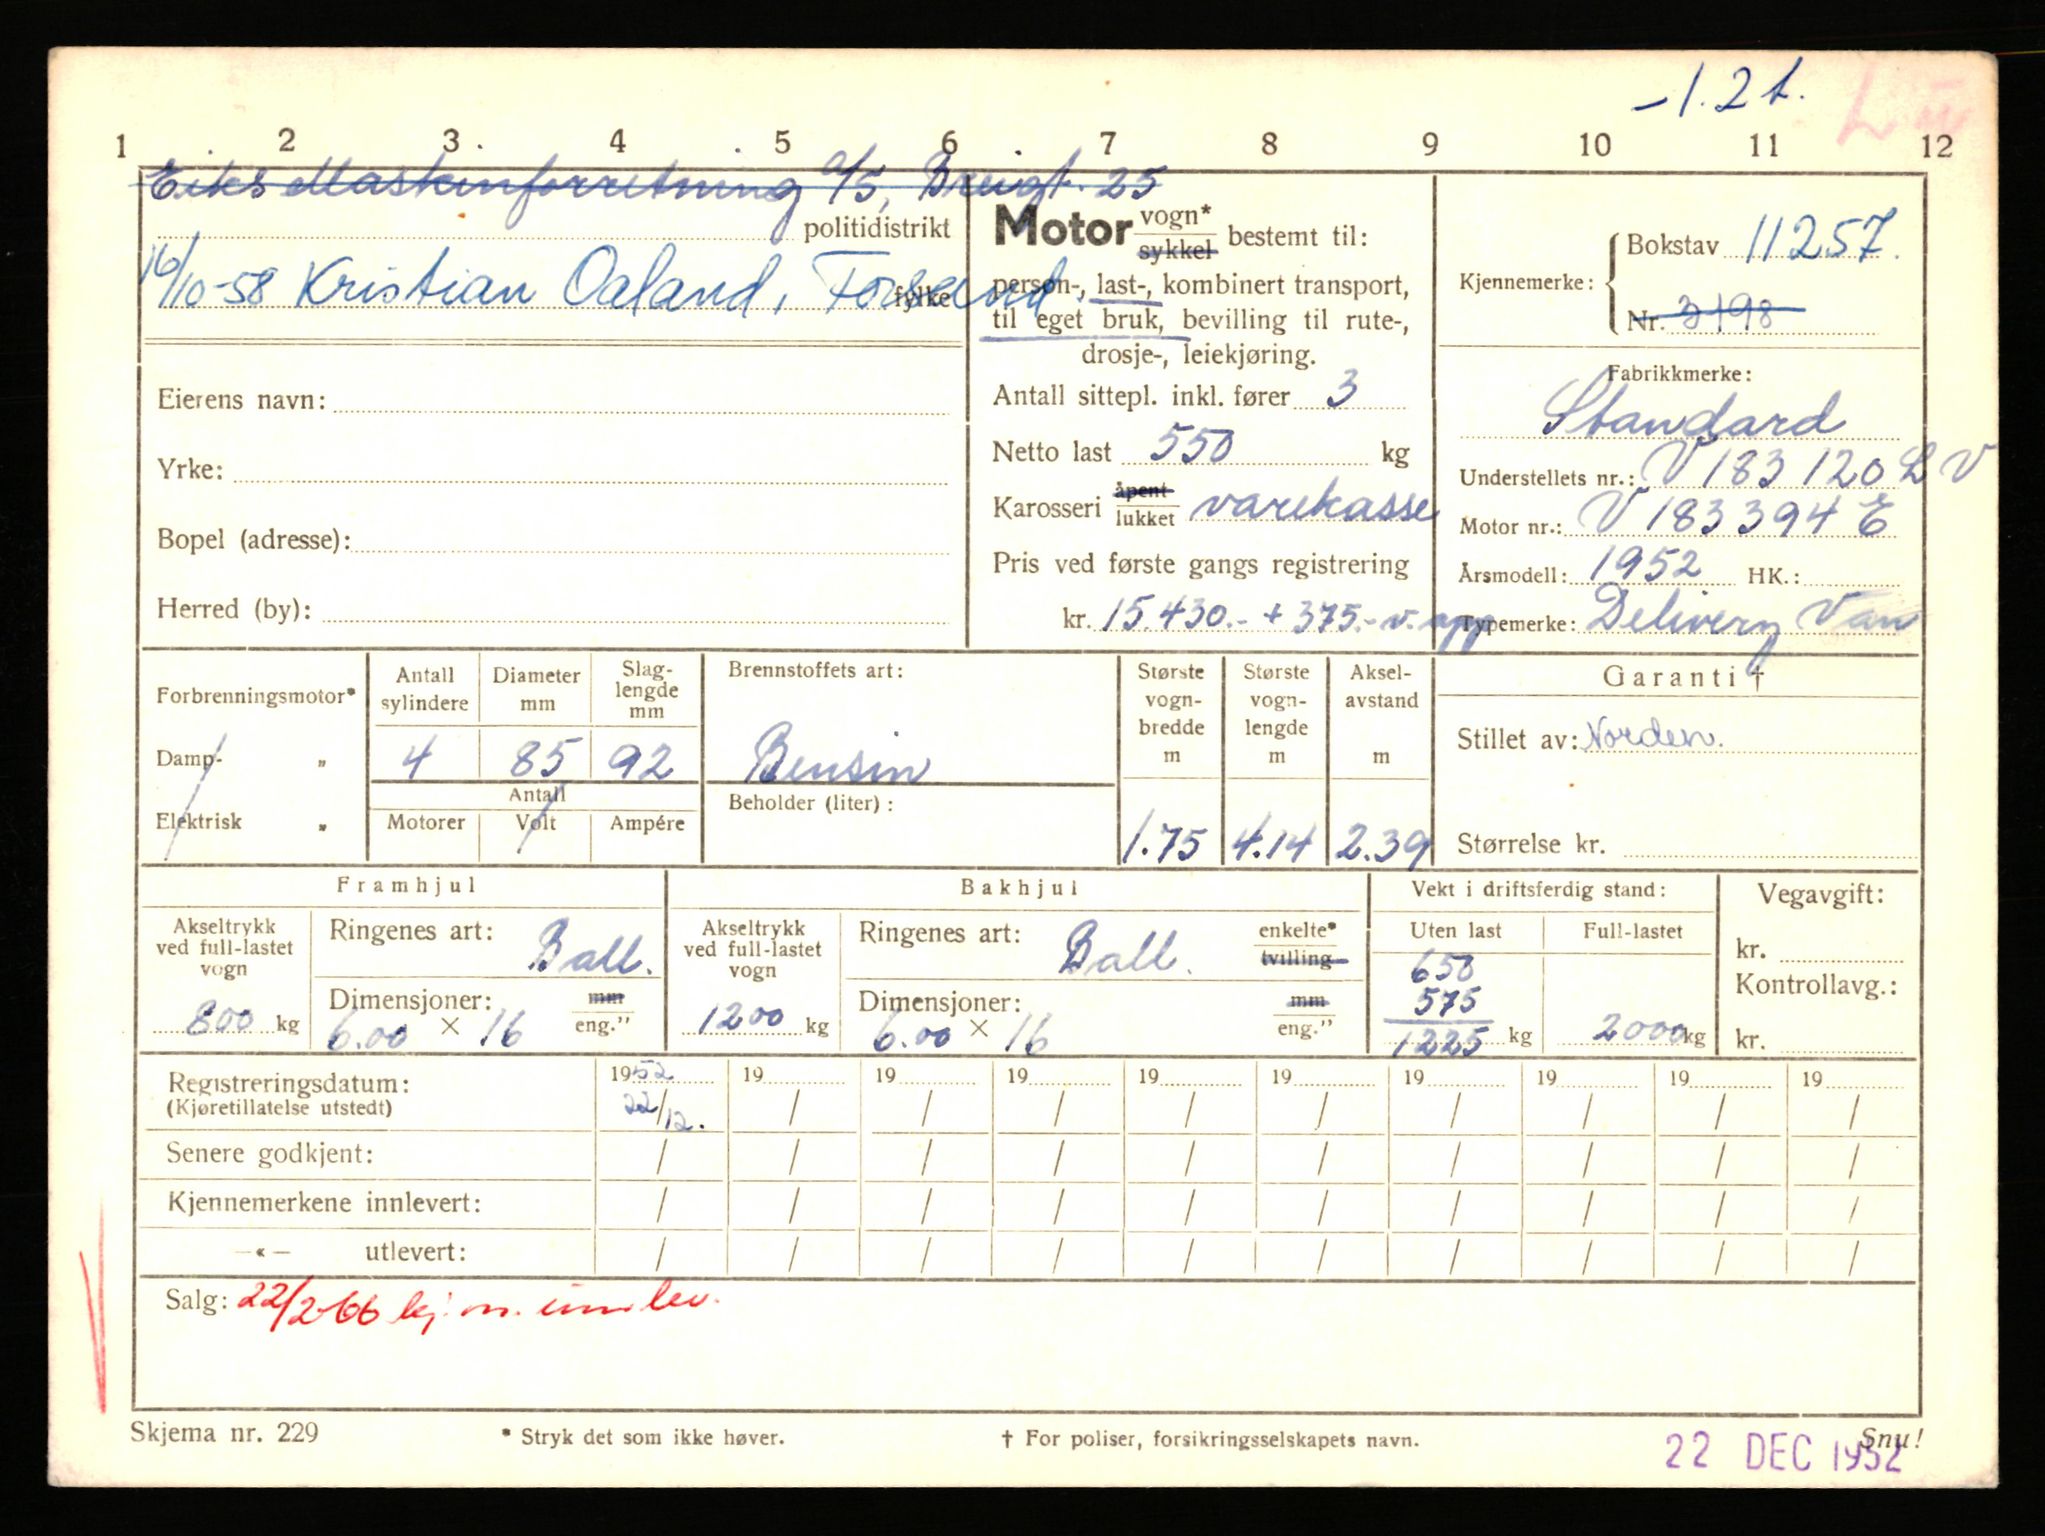 -1.2t.
1 2 3 4 5 6 7 8 9 10 11 12
Eiks Maskinforretning a/s, Breigt. 25
politidistrikt
16/10-58 Kristian Oaland, Forsand
fylke
Eierens navn:
Yrke:
Bopel (adresse):
Herred (by):
Motor vogn* sykkel bestemt til:
person-, last-, kombinert transport,
til eget bruk, bevilling til rute-,
drosje-, leiekjøring.
Antall sittepl. inkl. fører 3
Netto last 550 kg
Karosseri åpent lukket varekasse
Pris ved første gangs registrering
kr. 15.430.- + 375.- v. app
Kjennemerke: Bokstav 11257.
Nr. 3198
Fabrikkmerke:
Standard
Understellets nr.: V 183120 L V
Motor nr.: V 183394 E
Årsmodell: 1952 HK.:
Typemerke: Delivery Van
Forbrenningsmotor*
Damp- "
Elektrisk "
Antall sylindere
4
Diameter mm
85
Slag-lengde mm
92
Antall
Motorer Volt Ampére
Brennstoffets art:
Bensin
Beholder (liter):
Største vogn-bredde m
1.75
Største vogn-lengde m
4.14
Aksel-avstand m
2.39
Garanti †
Stillet av: Norden.
Størrelse kr.
Framhjul
Akseltrykk ved full-lastet vogn
800 kg
Ringenes art: Ball.
Dimensjoner: mm
6.00 × 16 eng."
Bakhjul
Akseltrykk ved full-lastet vogn
1200 kg
Ringenes art: Ball. enkelte* tvilling
Dimensjoner: mm
6.00 × 16 eng."
Vekt i driftsferdig stand:
Uten last
650
575
1225 kg
Full-lastet
2000 kg
Vegavgift:
kr.
Kontrollavg.:
kr.
Registreringsdatum: 1952 19 19 19 19 19 19 19 19 19
(Kjøretillatelse utstedt) 22/12. / / / / / / / / /
Senere godkjent: / / / / / / / / / /
Kjennemerkene innlevert: / / / / / / / / / /
—«— utlevert: / / / / / / / / / /
Salg: 22/2-66 kj. m. innlev.
Skjema nr. 229
* Stryk det som ikke høver.
† For poliser, forsikringsselskapets navn.
Snu!
22 DEC 1952